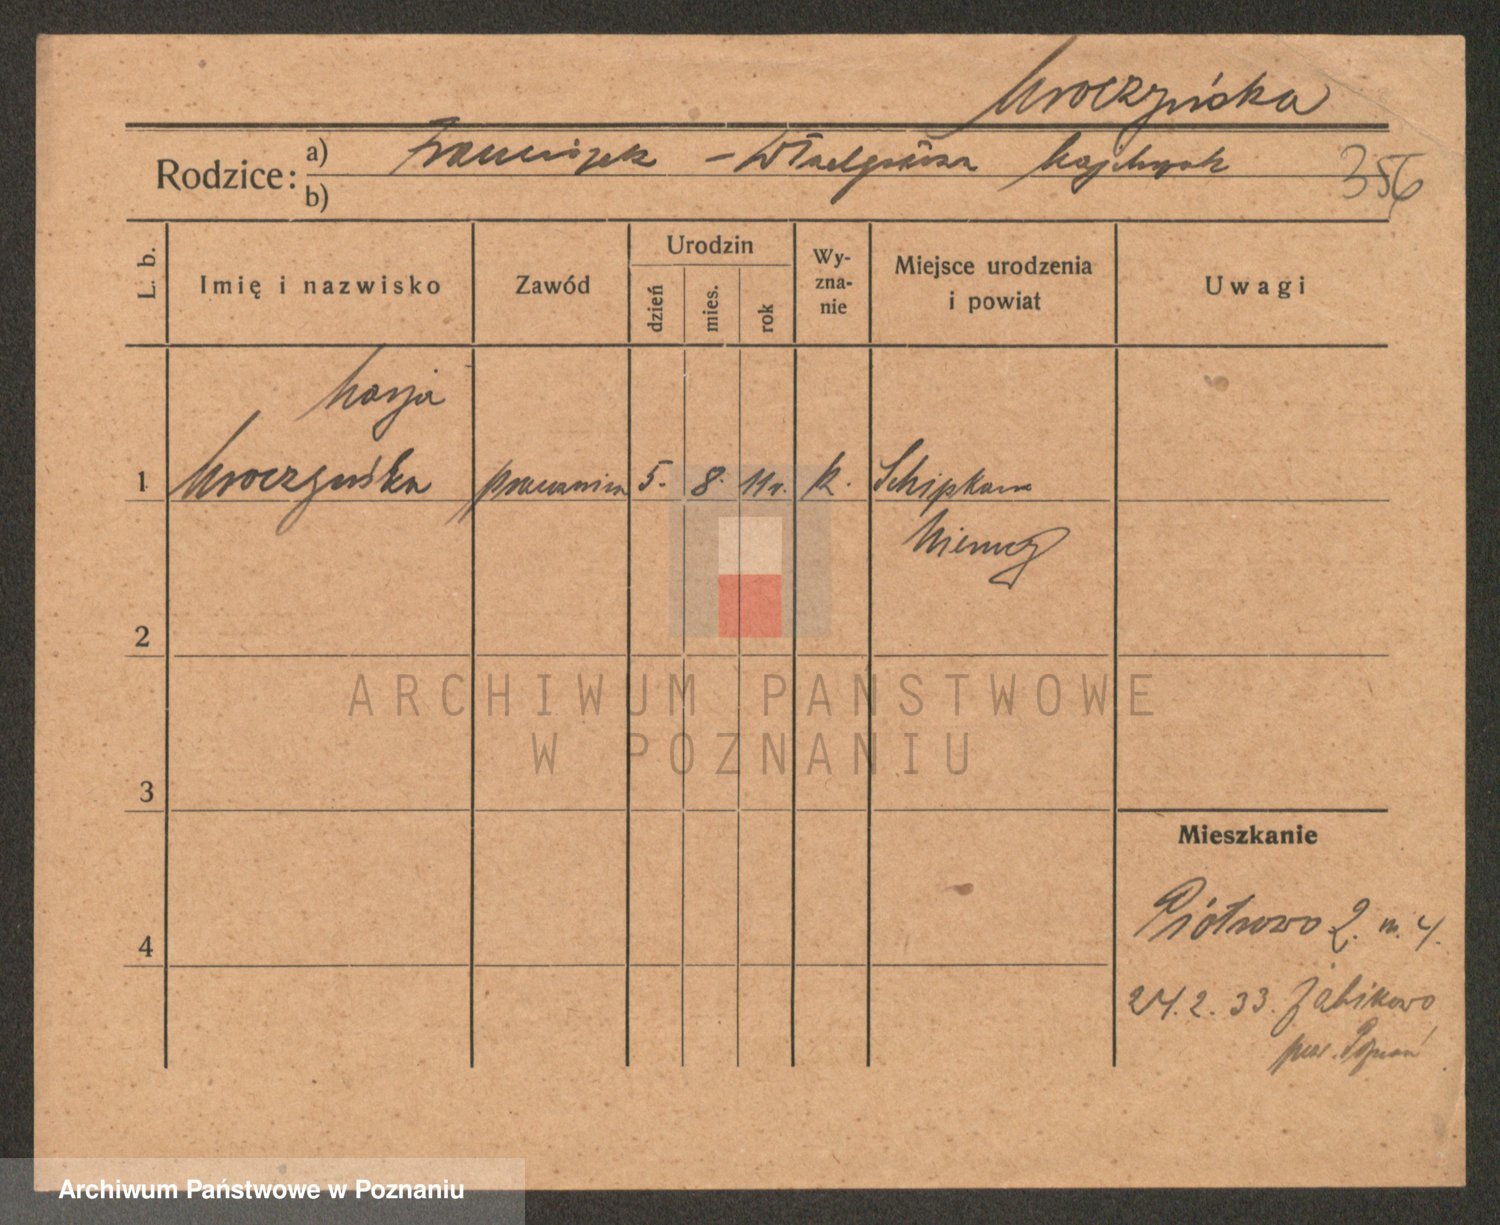 Mroczyńska
Rodzice: a) Franciszek – Władysława Kajchrzak
b)
356
L. b. Imię i nazwisko Zawód Urodzin dzień mies. rok Wyznanie Miejsce urodzenia i powiat Uwagi
Marja
1 Mroczyńska pracownica 5. 8. 11r. k. Schipkau
Niemcy
2
ARCHIWUM PAŃSTWOWE
W POZNANIU
3
Mieszkanie
Piotrowo 2. m. 4.
4
24. 2. 33. Żabikowo
pow. Poznań
Archiwum Państwowe w Poznaniu